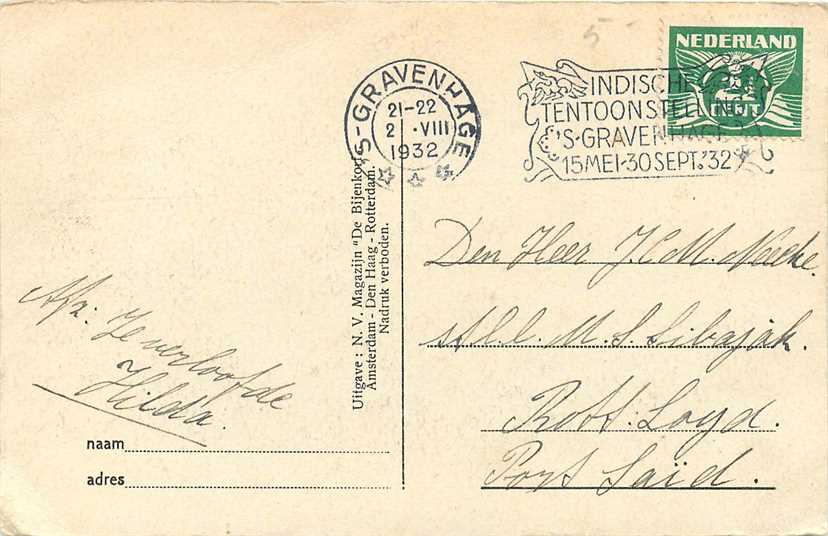 NEDERLAND
CENT
'S-GRAVENHAGE
21-22
2 .VIII
1932
INDISCHE
TENTOONSTELLING
'S-GRAVENHAGE
15 MEI-30 SEPT. '32
Uitgave: N. V. Magazijn "De Bijenkorf"
Amsterdam - Den Haag - Rotterdam.
Nadruk verboden.
Den Heer J. C. M.
a/b. M. S. Sibajak.
Rott: Loyd.
Port Saïd.
Afz: Je verloofde
Hilda.
naam
adres
5